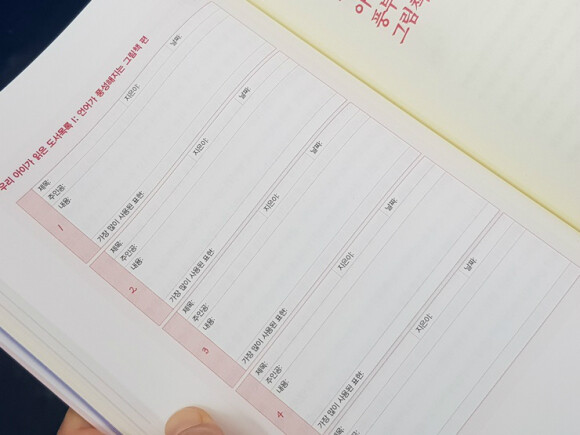 우리 아이가 읽은 도서목록 1: 언어가 풍성해지는 그림책 편
1
제목: 지은이: 날짜:
주인공:
내용:
가장 많이 사용된 표현:
2
제목: 지은이: 날짜:
주인공:
내용:
가장 많이 사용된 표현:
3
제목: 지은이: 날짜:
주인공:
내용:
가장 많이 사용된 표현:
4
제목: 지은이: 날짜:
주인공:
내용:
가장 많이 사용된 표현:
제목: 지은이: 날짜:
그림책